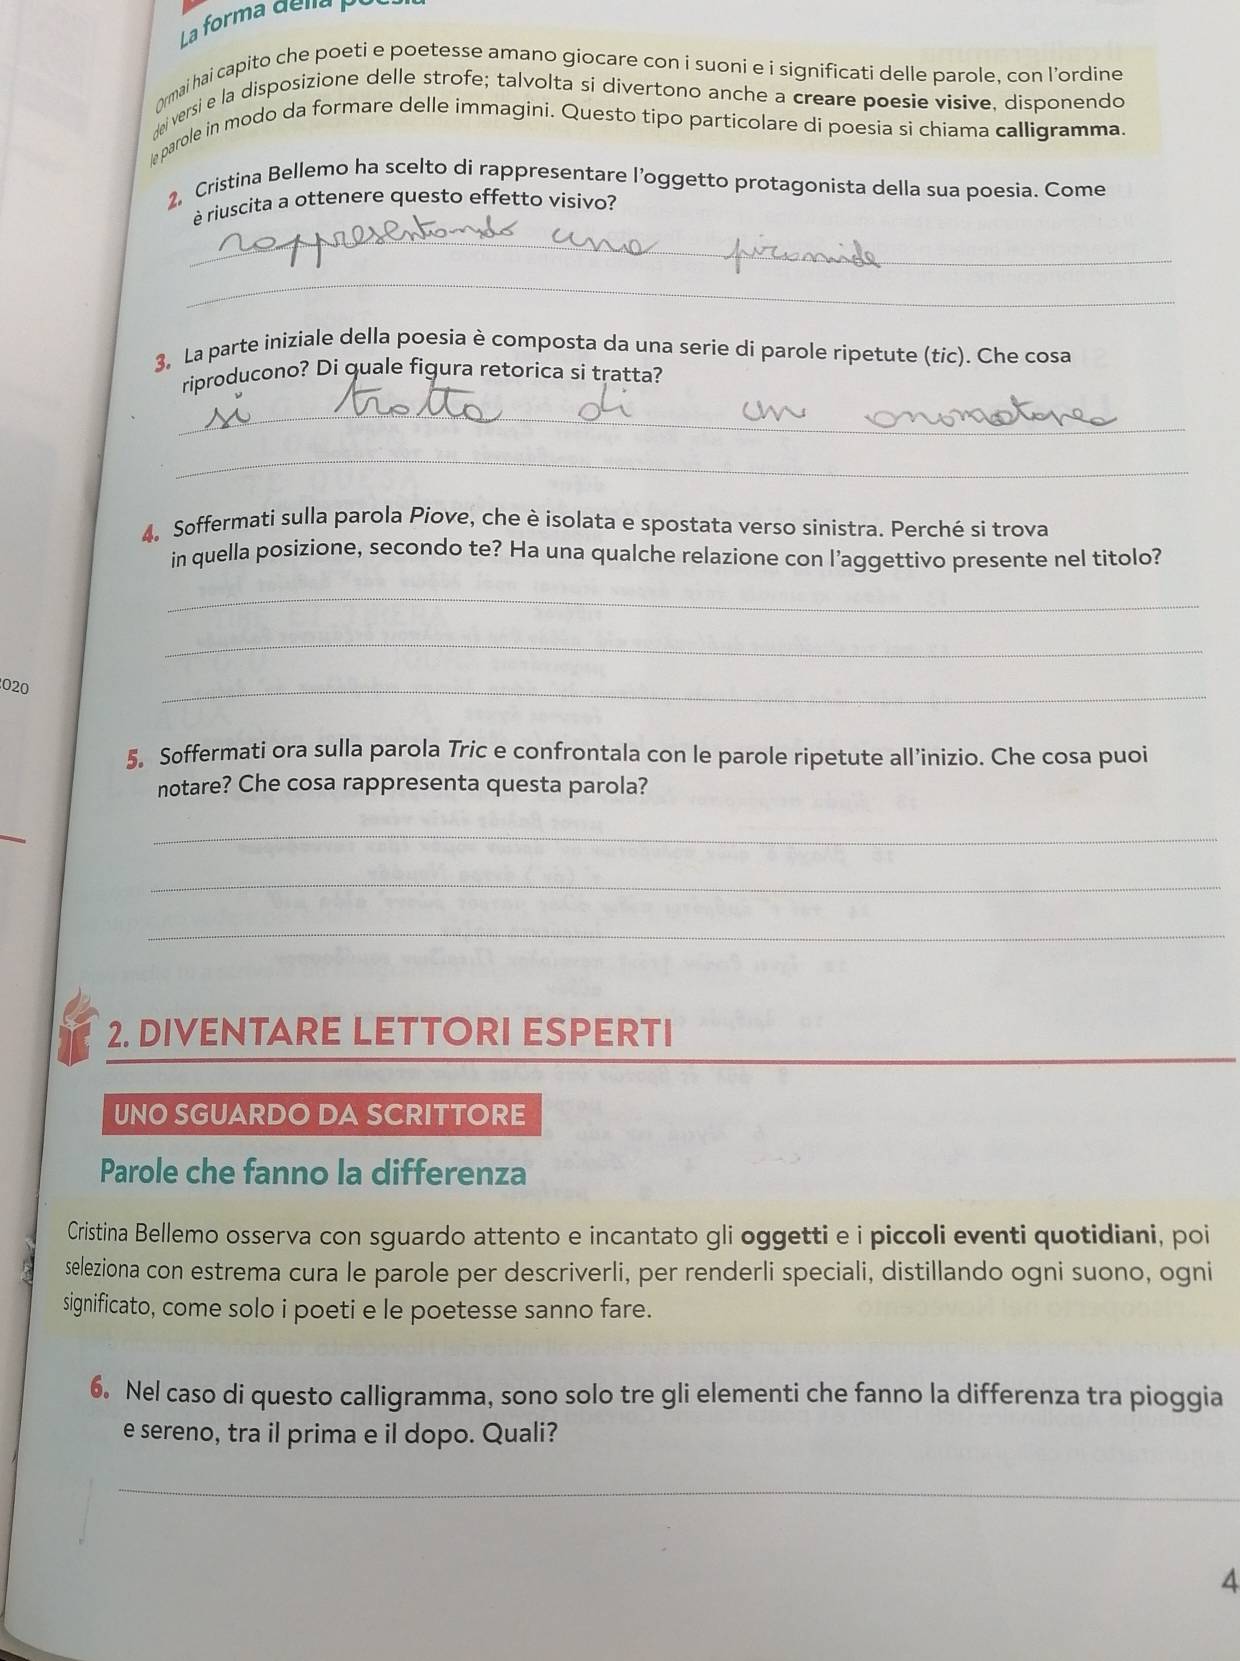 La forma della
Ormai hai capito che poeti e poetesse amano giocare con i suoni e i significati delle parole, con l'ordine
dei versi e la disposizione delle strofe; talvolta si divertono anche a creare poesie visive, disponendo
le parole in modo da formare delle immagini. Questo tipo particolare di poesia si chiama calligramma.
2. Cristina Bellemo ha scelto di rappresentare l'oggetto protagonista della sua poesia. Come
è riuscita a ottenere questo effetto visivo?
rappresentando una piramide
3. La parte iniziale della poesia è composta da una serie di parole ripetute (tic). Che cosa
riproducono? Di quale figura retorica si tratta?
si tratta di un
4. Soffermati sulla parola Piove, che è isolata e spostata verso sinistra. Perché si trova
in quella posizione, secondo te? Ha una qualche relazione con l'aggettivo presente nel titolo?
2020
5. Soffermati ora sulla parola Tric e confrontala con le parole ripetute all'inizio. Che cosa puoi
notare? Che cosa rappresenta questa parola?
2. DIVENTARE LETTORI ESPERTI
UNO SGUARDO DA SCRITTORE
Parole che fanno la differenza
Cristina Bellemo osserva con sguardo attento e incantato gli oggetti e i piccoli eventi quotidiani, poi
seleziona con estrema cura le parole per descriverli, per renderli speciali, distillando ogni suono, ogni
significato, come solo i poeti e le poetesse sanno fare.
6. Nel caso di questo calligramma, sono solo tre gli elementi che fanno la differenza tra pioggia
e sereno, tra il prima e il dopo. Quali?
4